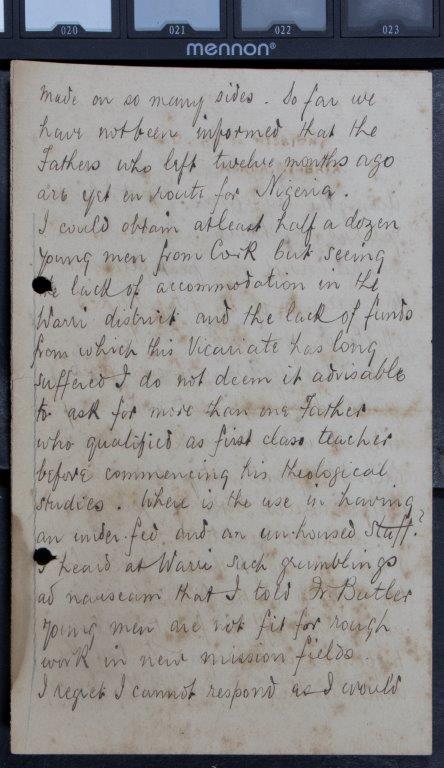 020 021 022 023
mennon®
made on so many sides. So far we
have not been informed that the
Fathers who left twelve months ago
are yet en route for Nigeria.
I could obtain atleast half a dozen
young men from Cork but seeing
the lack of accommodation in the
Warri district and the lack of funds
from which this Vicariate has long
suffered I do not deem it advisable
to ask for more than one Father
who qualified as first class teacher
before commencing his theological
studies. Where is the use in having
an under-fed and an un-housed Staff?
I heard at Warri such grumblings
ad nauseam that I told Dr. Butler
young men are not fit for rough
work in new mission fields.
I regret I cannot respond as I would